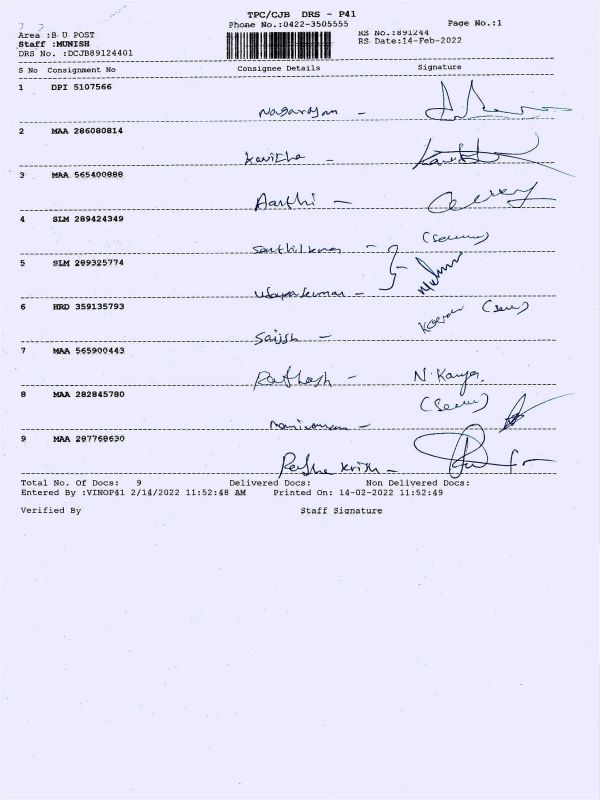 TPC/CJB DRS - P41
Phone No.:0422-3505555
Page No.:1
Area :B U POST
Staff :MUNISH
DRS No. :DCJB89124401
RS No.:891244
RS Date:14-Feb-2022
S No Consignment No Consignee Details Signature
1 DPI 5107566
Nagarajan -
2 MAA 286080814
Kavitha -
3 MAA 565400888
Aarthi -
4 SLM 289424349
Senthilkumar -
5 SLM 289325774
Udayakumar -
6 HRD 359135793
Sajish -
7 MAA 565900443
N. Kanya
8 MAA 282845780
9 MAA 287768630
Total No. Of Docs: 9 Delivered Docs: Non Delivered Docs:
Entered By :VINOP41 2/14/2022 11:52:48 AM Printed On: 14-02-2022 11:52:49
Verified By Staff Signature